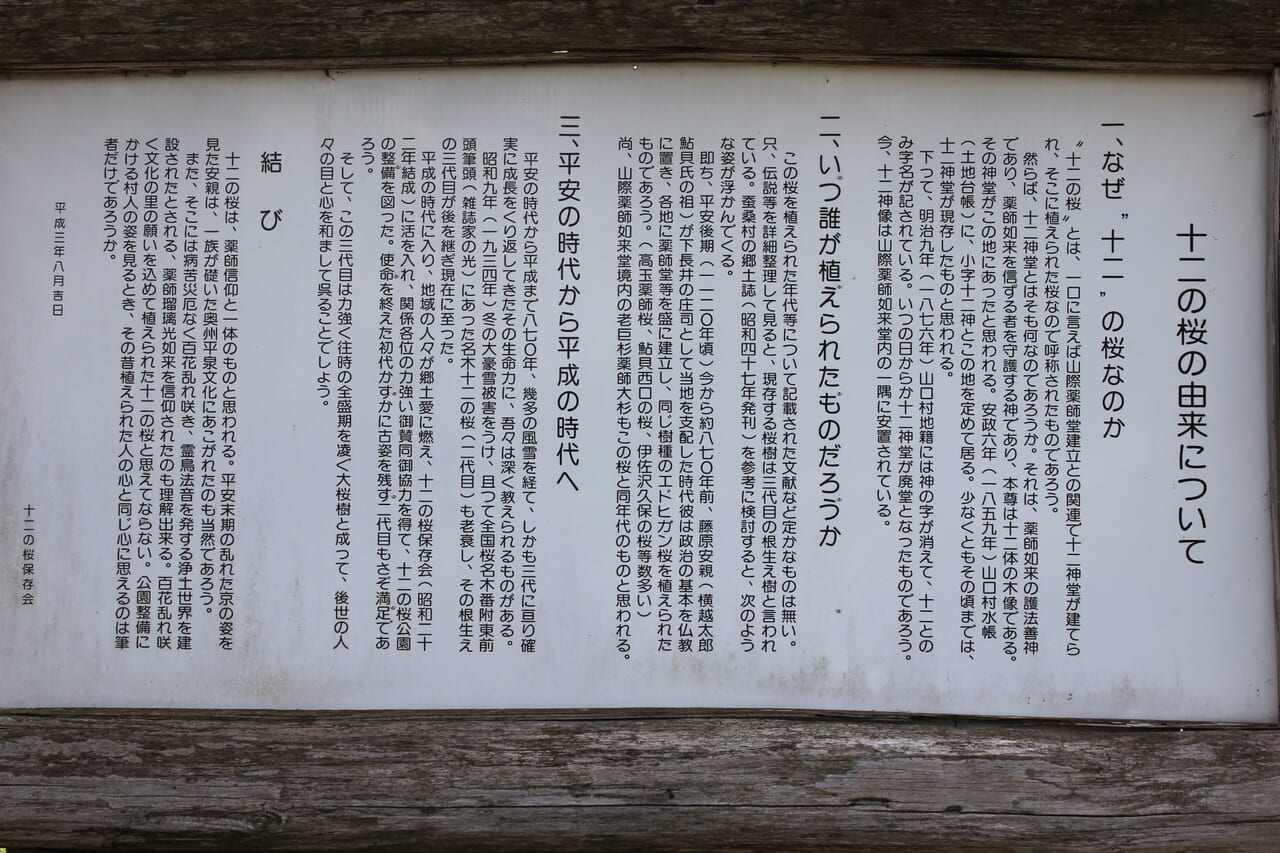 十二の桜の由来について
一、なぜ〝十二〟の桜なのか
〝十二の桜〟とは、一口に言えば山際薬師堂建立との関連で十二神堂が建てら
れ、そこに植えられた桜なので呼称されたものであろう。
然らば、十二神堂とはそも何なのであろうか。それは、薬師如来の護法善神
であり、薬師如来を信ずる者を守護する神であり、本尊は十二体の木像である。
その神堂がこの地にあったと思われる。安政六年（一八五九年）山口村水帳
（土地台帳）に、小字十二神とこの地を定めて居る。少なくともその頃までは、
十二神堂が現存したものと思われる。
下って、明治九年（一八七六年）山口村地籍には神の字が消えて、十二との
み字名が記されている。いつの日からか十二神堂が廃堂となったものであろう。
今、十二神像は山際薬師如来堂内の一隅に安置されている。
二、いつ誰が植えられたものだろうか
この桜を植えられた年代等について記載された文献など定かなものは無い。
只、伝説等を詳細整理して見ると、現存する桜樹は三代目の根生え樹と言われ
ている。蚕桑村の郷土誌（昭和四十七年発刊）を参考に検討すると、次のよう
な姿が浮かんでくる。
即ち、平安後期（一一二〇年頃）今から約八七〇年前、藤原安親（横越太郎
鮎貝氏の祖）が下長井の庄司として当地を支配した時代彼は政治の基本を仏教
に置き、各地に薬師堂等を盛に建立し、同じ樹種のエドヒガン桜を植えられた
ものであろう。（高玉薬師桜、鮎貝西口の桜、伊佐沢久保の桜等数多い）
尚、山際薬師如来堂境内の老巨杉薬師大杉もこの桜と同年代のものと思われる。
三、平安の時代から平成の時代へ
平安の時代から平成まで八七〇年、幾多の風雪を経て、しかも三代に亘り確
実に成長をくり返してきたその生命力に、吾々は深く教えられるものがある。
昭和九年（一九三四年）冬の大豪雪被害をうけ、且つて全国桜名木番附東前
頭筆頭（雑誌家の光）にあった名木十二の桜（二代目）も老衰し、その根生え
の三代目が後を継ぎ現在に至った。
平成の時代に入り、地域の人々が郷土愛に燃え、十二の桜保存会（昭和二十
二年結成）に活を入れ、関係各位の力強い御賛同御協力を得て、十二の桜公園
の整備を図った。使命を終えた初代かすかに古姿を残す二代目もさぞ満足であ
ろう。
そして、この三代目は力強く往時の全盛期を凌ぐ大桜樹と成って、後世の人
々の目と心を和まして呉ることでしょう。
結び
十二の桜は、薬師信仰と一体のものと思われる。平安末期の乱れた京の姿を
見た安親は、一族が礎いた奥州平泉文化にあこがれたのも当然であろう。
また、そこには病苦災厄なく百花乱れ咲き、霊鳥法音を発する浄土世界を建
設されたとされる、薬師瑠璃光如来を信仰されたのも理解出来る。百花乱れ咲
く文化の里の願いを込めて植えられた十二の桜と思えてならない。公園整備に
かける村人の姿を見るとき、その昔植えられた人の心と同じ心に思えるのは筆
者だけであろうか。
平成三年八月吉日
十二の桜保存会